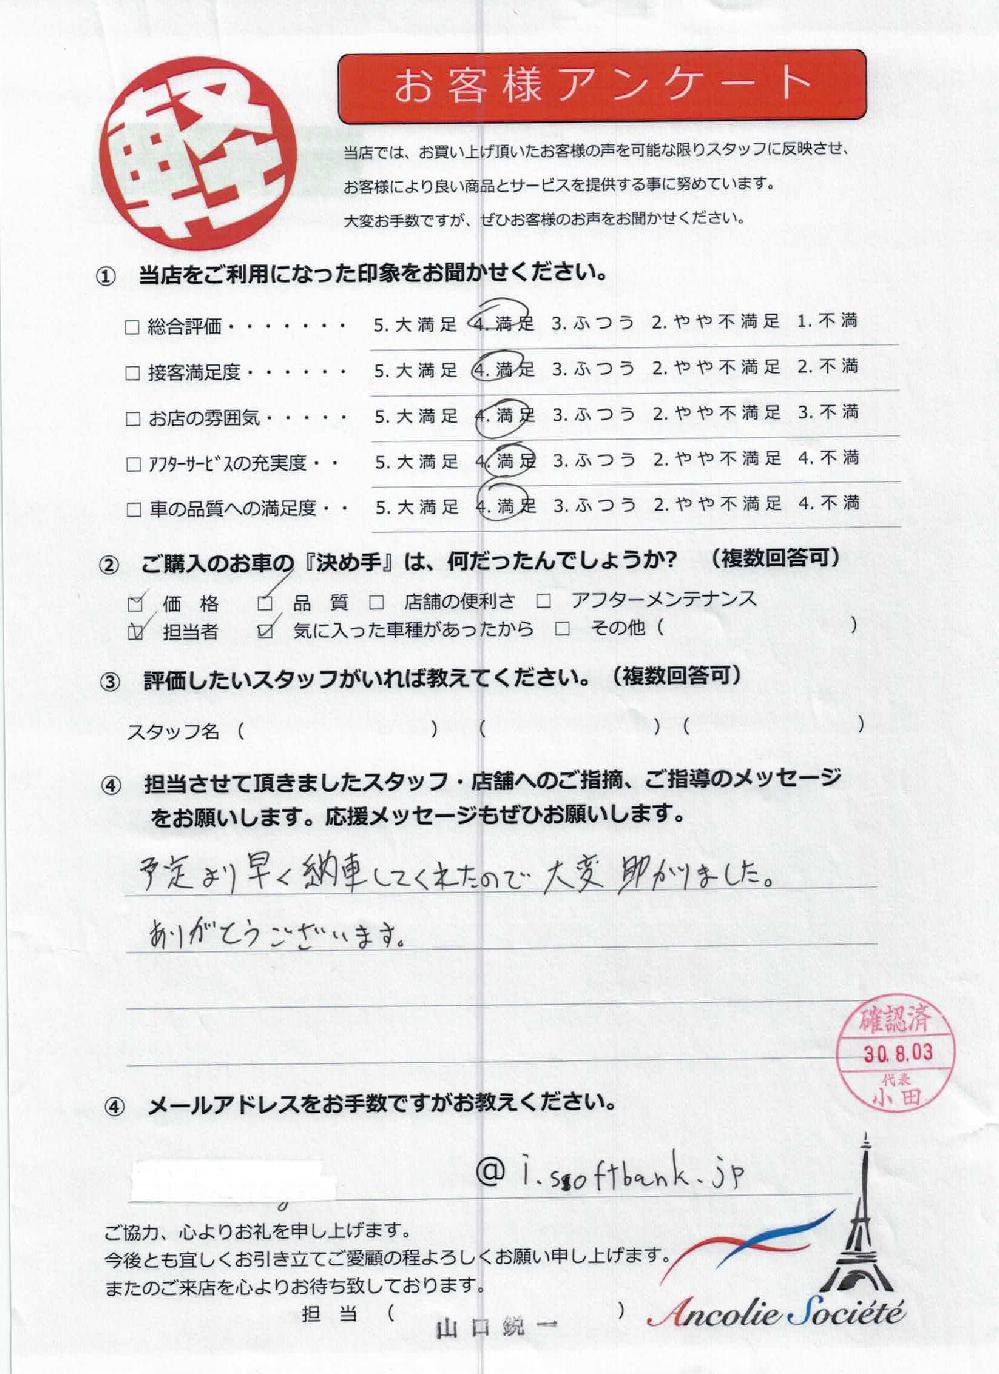 軽
お客様アンケート
当店では、お買い上げ頂いたお客様の声を可能な限りスタッフに反映させ、
お客様により良い商品とサービスを提供する事に努めています。
大変お手数ですが、ぜひお客様のお声をお聞かせください。
① 当店をご利用になった印象をお聞かせください。
□ 総合評価・・・・・・・ 5.大満足 4.満足 3.ふつう 2.やや不満足 1.不満
□ 接客満足度・・・・・・ 5.大満足 4.満足 3.ふつう 2.やや不満足 2.不満
□ お店の雰囲気・・・・・ 5.大満足 4.満足 3.ふつう 2.やや不満足 3.不満
□ ｱﾌﾀｰｻｰﾋﾞｽの充実度・・ 5.大満足 4.満足 3.ふつう 2.やや不満足 4.不満
□ 車の品質への満足度・・ 5.大満足 4.満足 3.ふつう 2.やや不満足 4.不満
② ご購入のお車の『決め手』は、何だったんでしょうか? (複数回答可)
☑ 価 格 ☑ 品 質 □ 店舗の便利さ □ アフターメンテナンス
☑ 担当者 ☑ 気に入った車種があったから □ その他 ( )
③ 評価したいスタッフがいれば教えてください。(複数回答可)
スタッフ名 ( ) ( ) ( )
④ 担当させて頂きましたスタッフ・店舗へのご指摘、ご指導のメッセージ
をお願いします。応援メッセージもぜひお願いします。
予定より早く納車してくれたので大変助かりました。
ありがとうございます。
確認済
30.8.03
代表
小田
④ メールアドレスをお手数ですがお教えください。
@ i.softbank.jp
ご協力、心よりお礼を申し上げます。
今後とも宜しくお引き立てご愛顧の程よろしくお願い申し上げます。
またのご来店を心よりお待ち致しております。
担 当 ( 山口鋭一 )
Ancolie Société